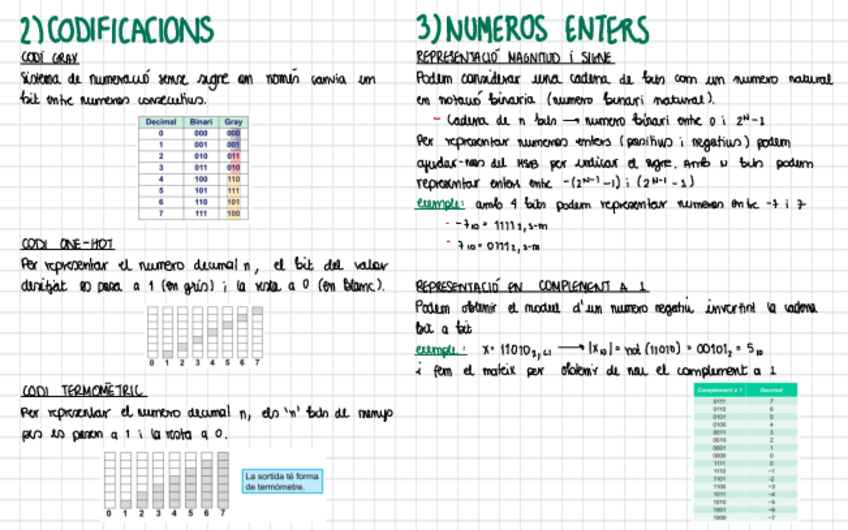 2) CODIFICACIONS
CODI GRAY
Sistema de numeració sense signe on només canvia un
bit entre numeros consecutius.
Decimal Binari Gray
0 000 000
1 001 001
2 010 011
3 011 010
4 100 110
5 101 111
6 110 101
7 111 100
CODI ONE-HOT
Per representar el numero decimal n, el bit del valor
desitjat es posa a 1 (en gris) i la resta a 0 (en blanc).
0 1 2 3 4 5 6 7
CODI TERMOMÈTRIC
Per representar el numero decimal n, els 'n' bits de menys
pes es posen a 1 i la resta a 0.
La sortida té forma
de termòmetre.
0 1 2 3 4 5 6 7
3) NUMEROS ENTERS
REPRESENTACIÓ MAGNITUD i SIGNE
Podem considerar una cadena de bits com un numero natural
en notació binaria (numero binari natural).
- Cadena de n bits → numero binari entre 0 i 2ᴺ-1
Per representar numeros enters (positius i negatius) podem
ajudar-nos del MSB per indicar el signe. Amb N bits podem
representar enters entre -(2ᴺ⁻¹-1) i (2ᴺ⁻¹-1)
exemple: amb 4 bits podem representar numeros entre -7 i 7
- -7₁₀ = 1111₂,s-m
- 7₁₀ = 0111₂,s-m
REPRESENTACIÓ EN COMPLEMENT A 1
Podem obtenir el modul d'un numero negatiu invertint la cadena
bit a bit
exemple: x = 11010₂,c1 → |x₁₀| = not (11010) = 00101₂ = 5₁₀
i fem el mateix per obtenir de nou el complement a 1
Complement a 1 Decimal
0111 7
0110 6
0101 5
0100 4
0011 3
0010 2
0001 1
0000 0
1111 0
1110 -1
1101 -2
1100 -3
1011 -4
1010 -5
1001 -6
1000 -7